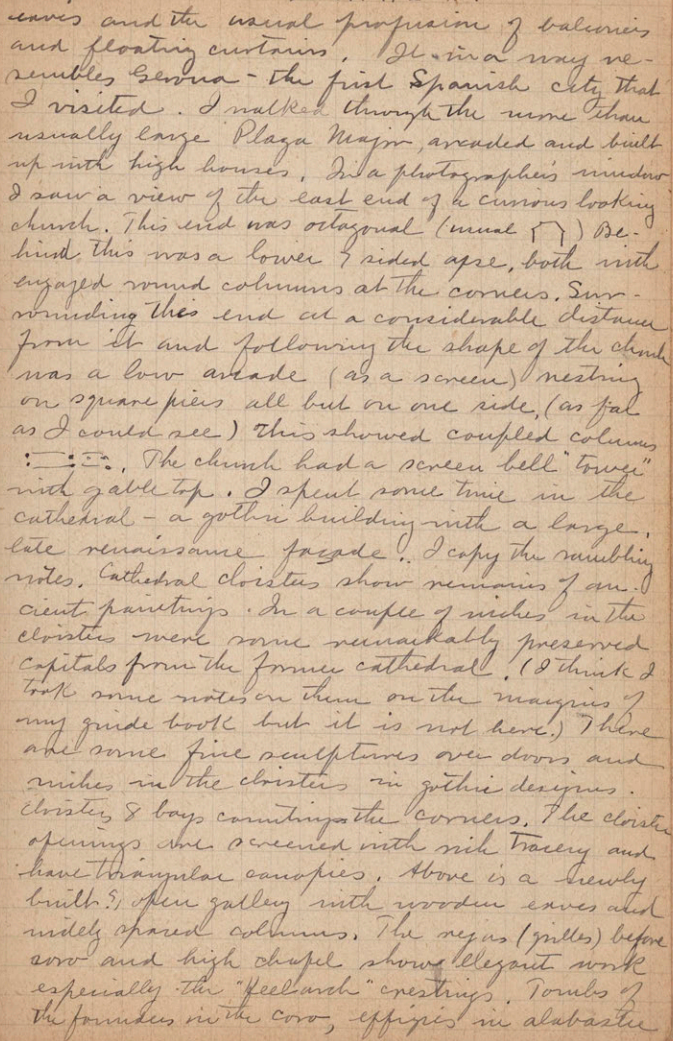 eaves and the usual profusion of balconies
and floating curtains. It in a way re-
sembles Gerona - the first Spanish city that
I visited. I walked through the more than
usually large Plaza Major, arcaded and built
up with high houses. In a photographer's window
I saw a view of the east end of a curious looking
church. This end was octagonal (usual ) Be-
hind this was a lower 7 sided apse, both with
engaged round columns at the corners. Sur-
rounding this end at a considerable distance
from it and following the shape of the church
was a low arcade (as a screen) resting
on square piers all but on one side, (as far
as I could see) this showed coupled columns
. The church had a screen bell "tower"
with gable top. I spent some time in the
cathedral - a gothic building with a large,
late renaissance facade. I copy the rambling
notes. Cathedral cloisters show remains of an-
cient paintings. In a couple of niches in the
cloisters were some remarkably preserved
capitals from the former cathedral. (I think I
took some notes on them on the margins of
my guide book but it is not here.) There
are some fine sculptures over doors and
niches in the cloisters in gothic designs.
Cloisters 8 bays counting the corners. The cloister
openings are screened with rich tracery and
have triangular canopies. Above is a newly
built open gallery with wooden eaves and
widely spaced columns. The rejas (grilles) before
coro and high chapel show elegant work
especially the "keelarch" crestings. Tombs of
the founders in the coro, effigies in alabaster